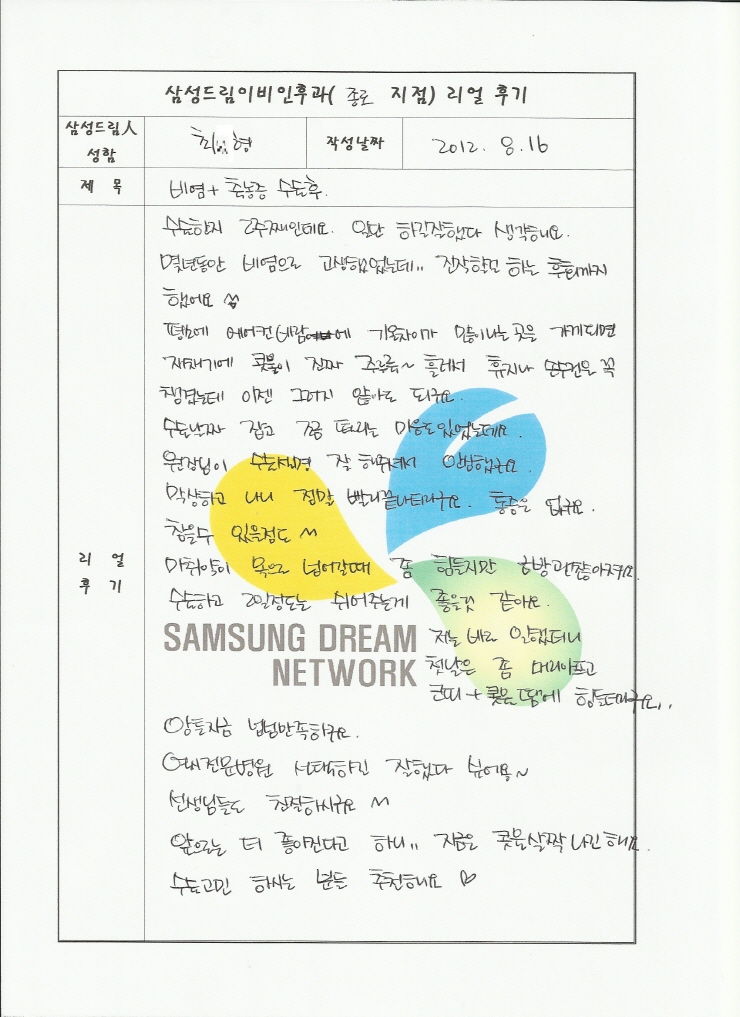 삼성드림이비인후과( 종로 지점) 리얼 후기
삼성드림人 성함
최 형
작성날짜
2012. 8. 16
제 목
비염+축농증 수술후.
리 얼 후 기
수술한지 2주째인데요. 일단 하길잘했다 생각해요.
몇년동안 비염으로 고생했었는데.. 진작할껄 하는 후회까지
했어요 ^^
평소에 에어컨 바람 에 기온차이가 많이나는 곳을 가게되면
재채기에 콧물이 진짜 주르륵~ 흘러서 휴지나 손수건은 꼭
챙겼는데 이젠 그러지 않아도 되구요.
수술날짜 잡고 쪼금 떨리는 마음도있었는데요.
원장님이 수술설명 잘 해주셔서 안심했구요.
막상하고 나니 정말 빨리끝나더라구요. 통증은 있구요.
참을수 있을정도 ^^
마취약이 목으로 넘어갈때 좀 힘들지만 금방괜찮아져요.
수술하고 2일정도는 쉬어주는게 좋을것 같아요.
SAMSUNG DREAM
NETWORK
저는 바로 일했더니
첫날은 좀 머리아프고
코피+콧물 땜에 힘들더라구요..
암튼지금 넘넘만족하구요.
역시전문병원 선택하길 잘했다 싶어용~
선생님들도 친절하시구요 ^^
앞으로는 더 좋아진다고 하니.. 지금은 콧물살짝 나긴해요.
수술고민 하시는 분들 추천해요 ♡